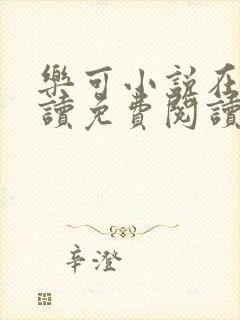 樂可小說在
讀免費閱讀
辛澄